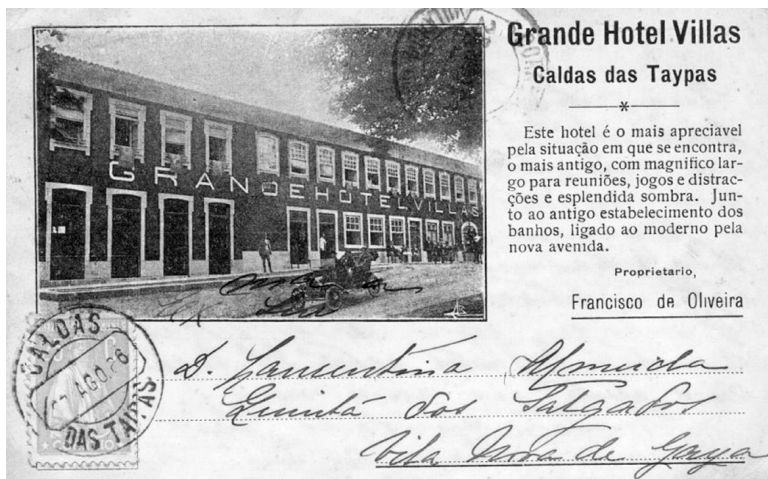 Grande Hotel Villas
Caldas das Taypas
Este hotel é o mais apreciavel
pela situação em que se encontra,
o mais antigo, com magnifico lar-
go para reuniões, jogos e distrac-
ções e esplendida sombra. Jun-
to ao antigo estabelecimento dos
banhos, ligado ao moderno pela
nova avenida.
Proprietario,
Francisco de Oliveira
GRANDE HOTEL VILLAS
CALDAS
AGO
DAS TAIPAS
D. Almeida
Quinta dos Salgados
Vila Nova de Gaya